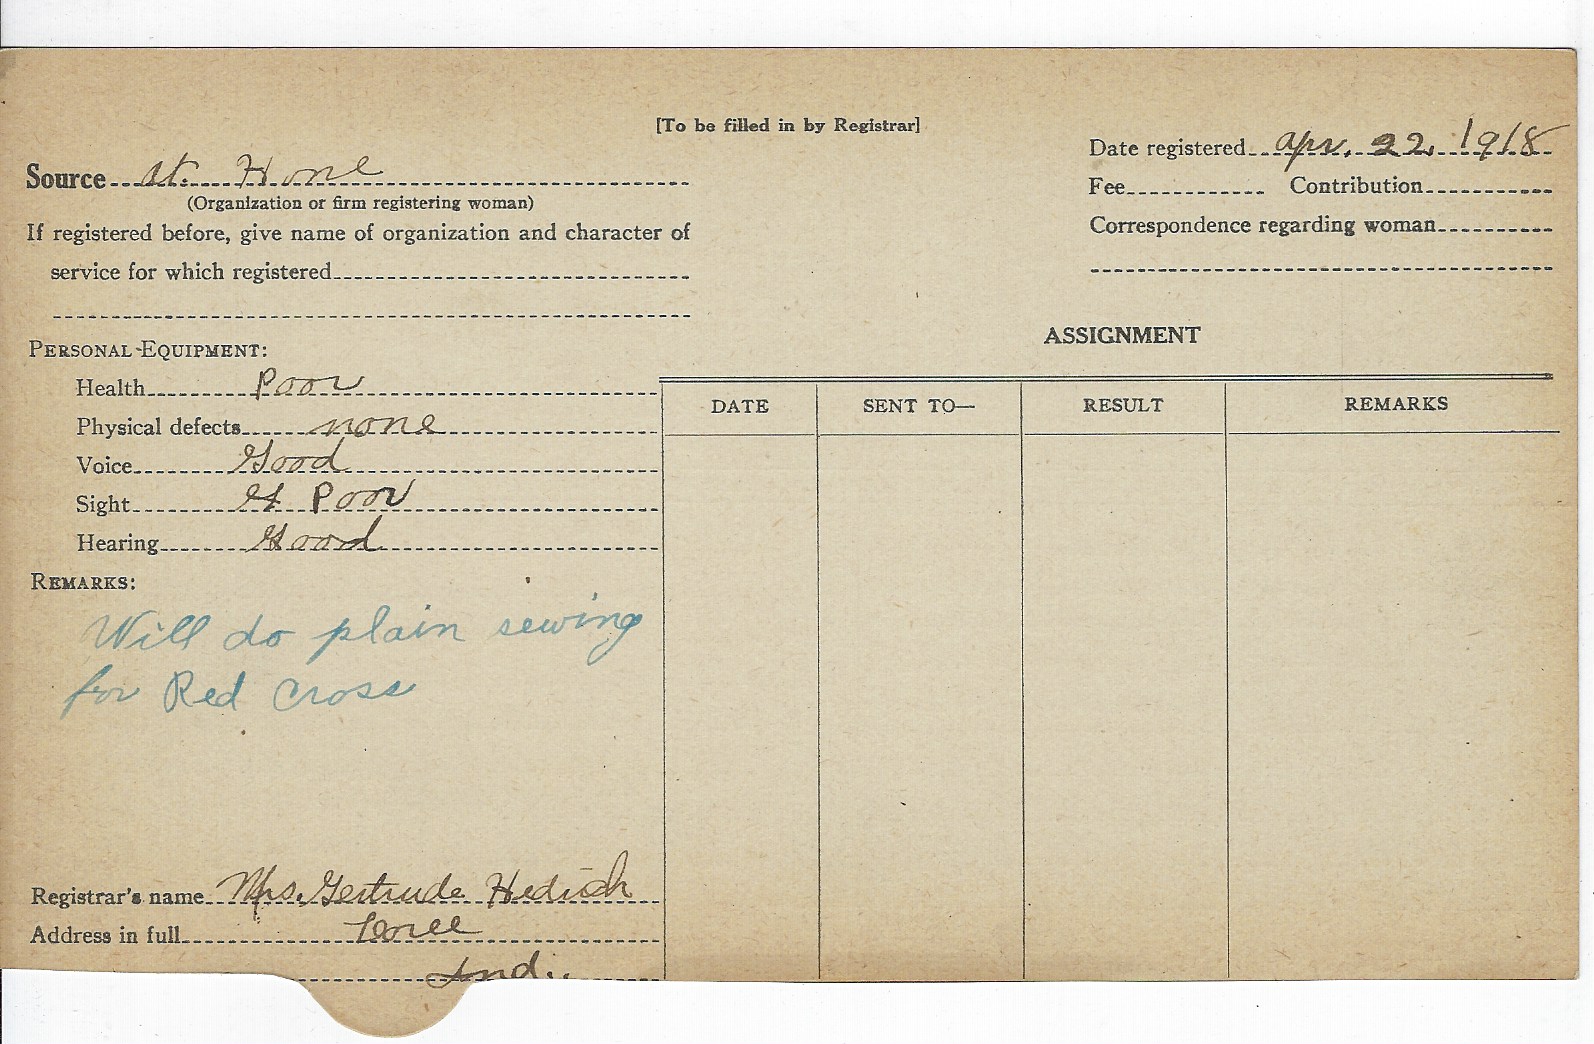 [To be filled in by Registrar]
Date registered Apr. 22, 1918
Source at. Hone
(Organization or firm registering woman)
Fee Contribution
If registered before, give name of organization and character of
service for which registered
Correspondence regarding woman
PERSONAL EQUIPMENT:
Health Poor
Physical defects none
Voice Good
Sight Poor
Hearing Good
REMARKS:
Will do plain sewing
for Red Cross
Registrar's name Mrs. Gertrude
Address in full
Ind.
ASSIGNMENT
DATE SENT TO— RESULT REMARKS